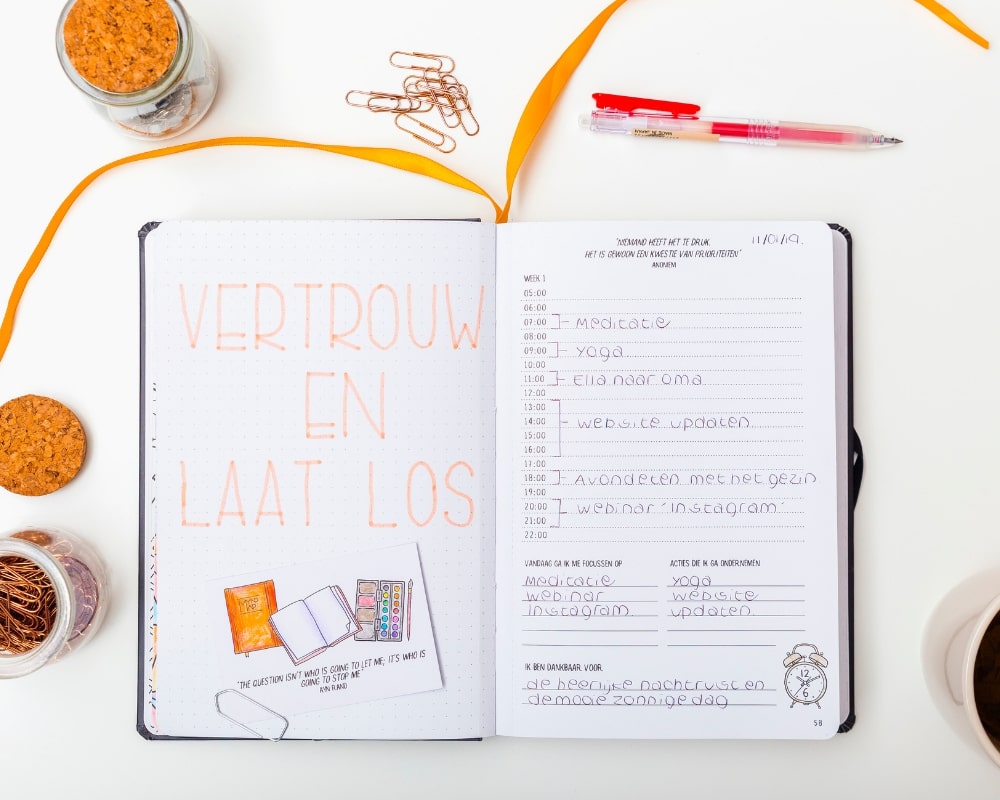 VERTROUW
EN
LAAT LOS
"THE QUESTION ISN'T WHO IS GOING TO LET ME; IT'S WHO IS
GOING TO STOP ME"
AYN RAND
"NIEMAND HEEFT HET TE DRUK,
HET IS GEWOON EEN KWESTIE VAN PRIORITEITEN"
ANONIEM
11/01/19.
WEEK 1
05:00
06:00
07:00 Meditatie
08:00
09:00 Yoga
10:00
11:00 Ella naar oma
12:00
13:00
14:00 website updaten
15:00
16:00
17:00
18:00 Avondeten met het gezin
19:00
20:00 webinar 'Instagram'
21:00
22:00
VANDAAG GA IK ME FOCUSSEN OP
Meditatie
webinar
Instagram
ACTIES DIE IK GA ONDERNEMEN
yoga
website
updaten
IK BEN DANKBAAR VOOR:
de heerlijke nachtrust en
de mooie zonnige dag
12
6
58